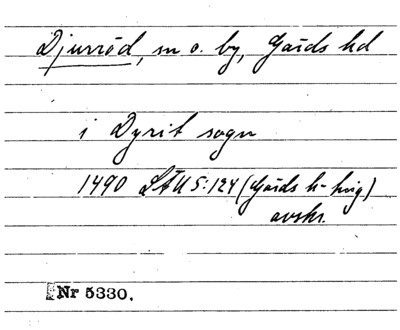 Djurröd, m o. by, Gärds hd
i Dyrit sogn
1490 LÄU 5:124 (Gärds h-
avskr.
Nr 5330.